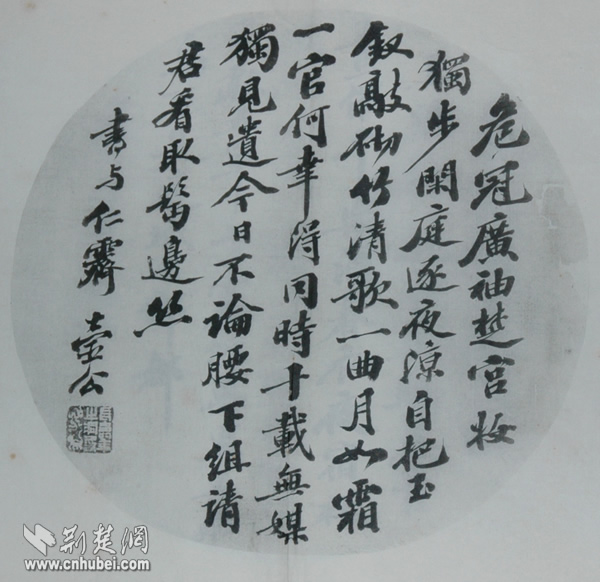 危冠廣袖楚宮妝
獨步閑庭逐夜涼自把玉
釵敲砌竹清歌一曲月如霜
一官何幸得同時十載無媒
獨見遺今日不論腰下組請
君看取鬢邊絲
書与仁霽 壺公
荆楚網
www.cnhubei.com